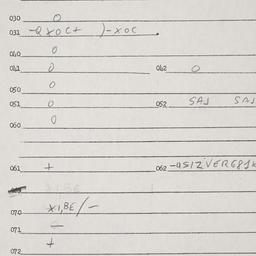 030 0
031 -QXOC+ )-XOC .
040 0
041 0 042 0
050 0
051 0 052 SAJ SAJ
060 0
061 + 062
070 XI,BE/-
071 -
072 +